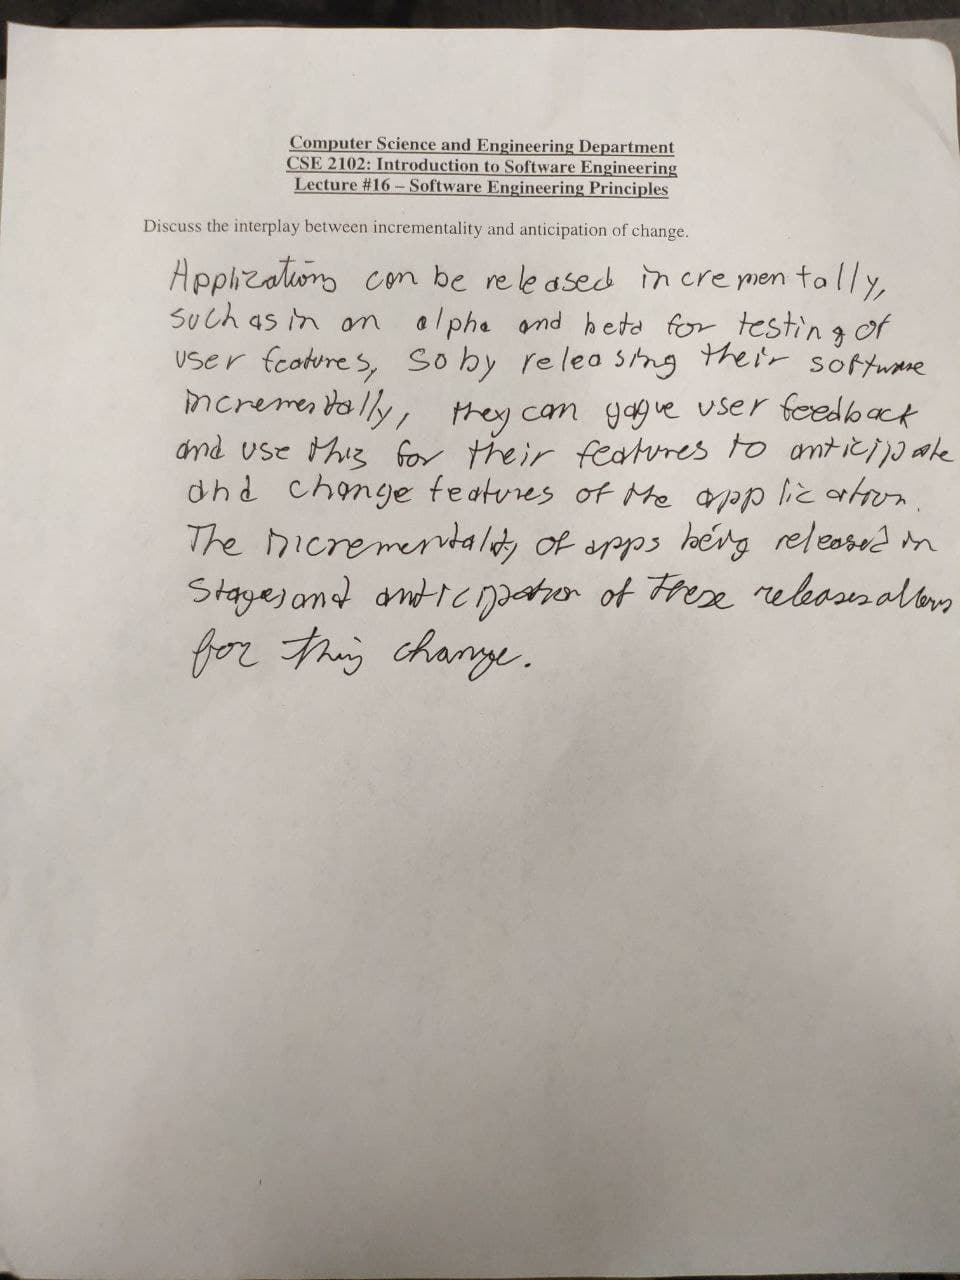 Computer Science and Engineering Department
CSE 2102: Introduction to Software Engineering
Lecture #16 – Software Engineering Principles
Discuss the interplay between incrementality and anticipation of change.
Applications can be released incrementally,
such as in an alpha and beta for testing of
user features, so by releasing their software
incrementally, they can gague user feedback
and use this for their features to anticipate
and change features of the application.
The incrementality of apps being released in
stages and anticipation of these releases allows
for this change.